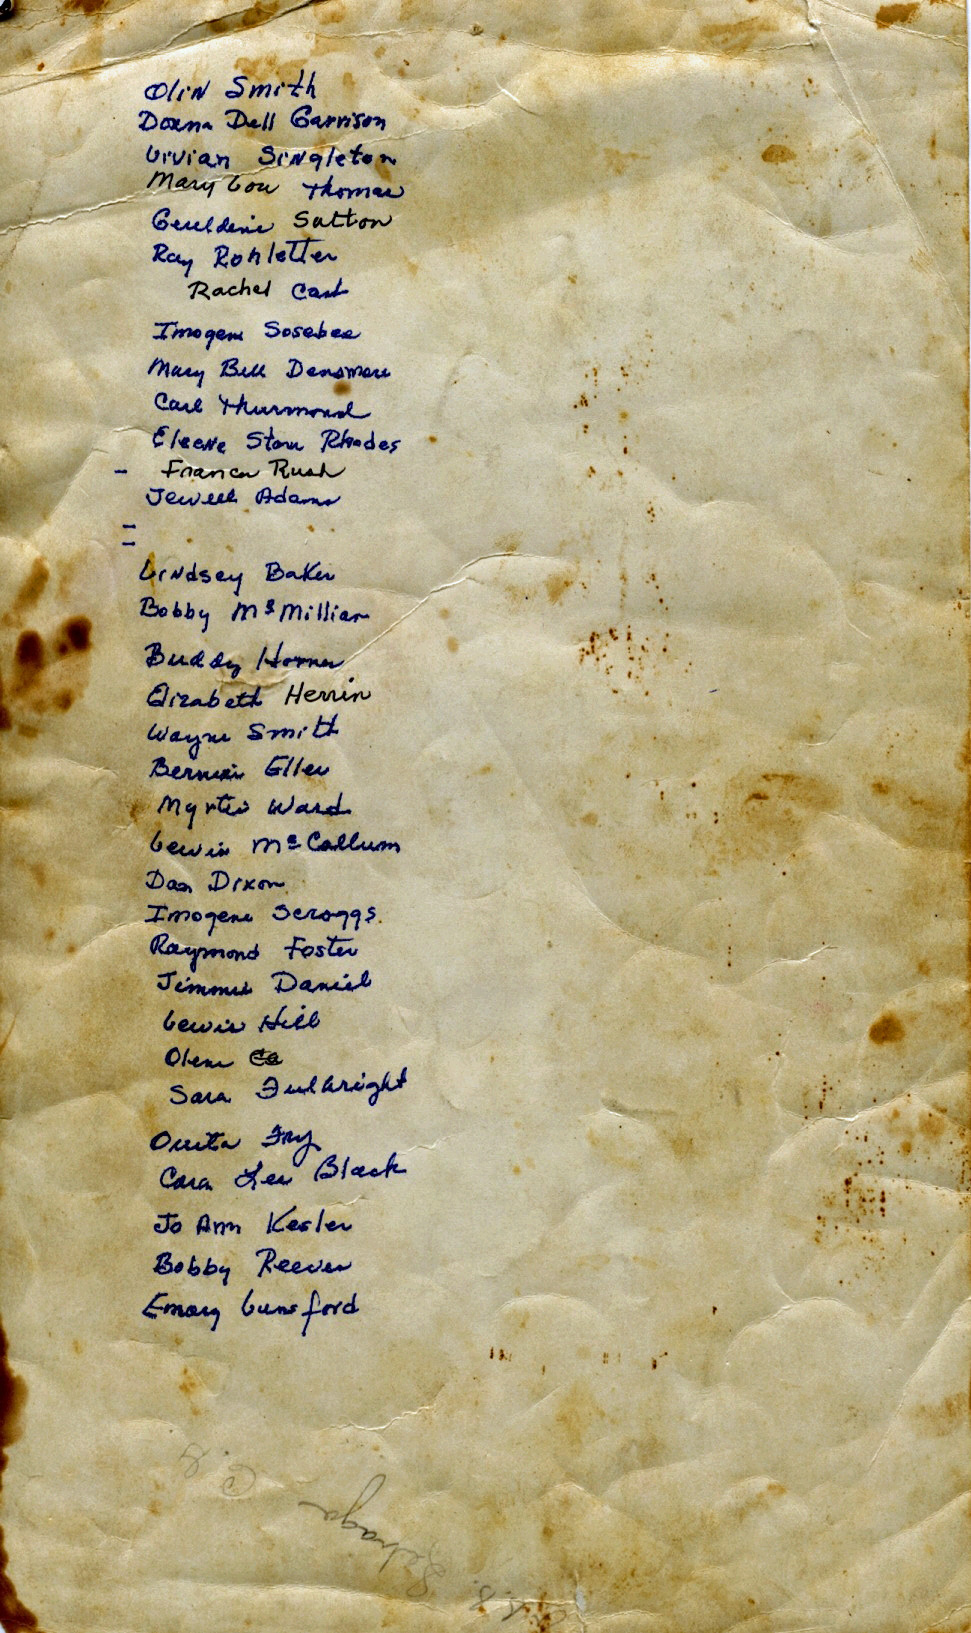 Olin Smith
Donna Dell Garrison
Vivian Singleton
Mary Lou Thomas
Geraldine Sutton
Ray Rohletter
Rachel Cash
Imogene Sosebee
Mary Bell Densmore
Carl Thurmond
Eleene Stow Rhodes
- Frances Rush
Jewell Adams
-
-
Lindsey Baker
Bobby McMillian
Buddy Horner
Elizabeth Herrin
Wayne Smith
Bernice Eller
Myrtis Ward
Lewis McCollum
Dan Dixon
Imogene Scroggs
Raymond Foster
Jimmie Daniel
Lewis Hill
Olene
Sara Fulbright
Fry
Cora Lee Black
Jo Ann Kesler
Bobby Reeves
Emory Lunsford